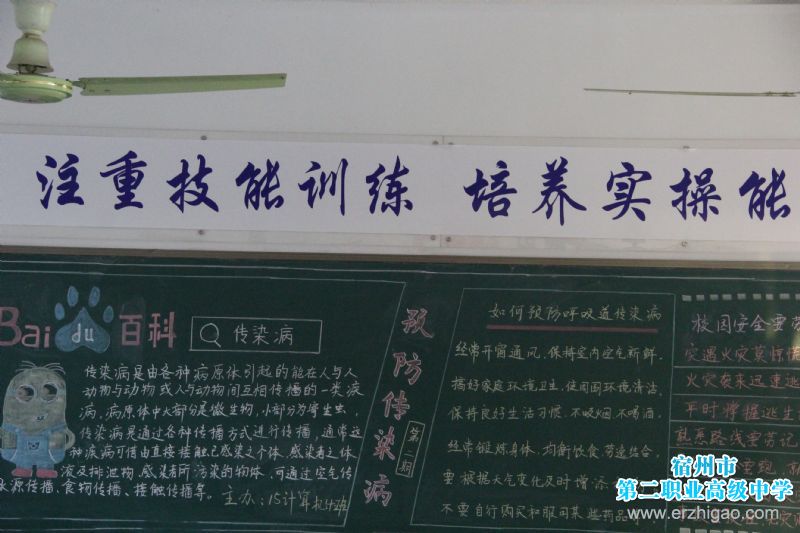 注重技能训练 培养实操能
Bai du 百科
传染病
传染病是由各种病原体引起的能在人与人
动物与动物或人与动物间互相传播的一类疾
病,病原体中大部分是微生物,小部分为寄生虫,
传染病是通过各种传播方式进行传播,通常这
种疾病可借由直接接触已感染之个体,感染者之体
液及排泄物,感染者所污染的物体,可通过空气传
水源传播、食物传播、接触传播等。
主办:15计算机
预防传染病
第二期
如何预防呼吸道传染病
经常开窗通风,保持室内空气新鲜,
搞好家庭环境卫生,
保持良好生活习惯,不吸烟不喝酒。
经常锻炼身体,均衡饮食,劳逸结合。
要根据天气变化及时增添
不要自行购买和服用某些药品
校园安全要
突遇火灾莫惊慌
火灾袭来迅速逃
平时掌握逃生
熟悉路线要劳记
宿州市
第二职业高级中学
www.erzhigao.com